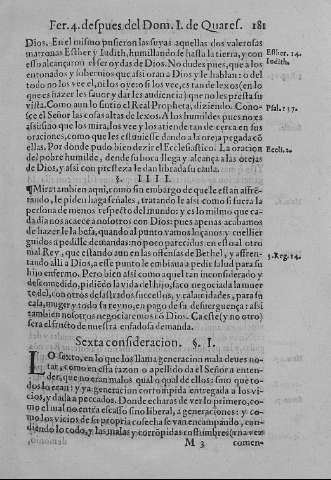 Fer. 4. despues del Dom. I. de Quares. 181
Dios. En el mismo pusieron las suyas aquellas dos valerosas
matronas Esther y Iudith, humillando se hasta la tierra, y con
esso alcançaron el ser oydas de Dios. No dudes pues, que a los
entonados y sobervios que assi oran a Dios y le hablan: o del
todo no los vee el, ni los oye: o si los vee, es tan de lexos (en lo
que es hazer les favor y dar les audiencia) que no les presta su
vista. Como aun lo sintio el Real Propheta, diziendo. Cono-
sce el Señor las cosas altas de lexos. A los humildes pues no es
assi sino que los mira, los vee y los atiende tan de cerca en sus
oraciones, como que les estuviesse dando a la oreja pegada cõ
ellas. Por donde pudo bien dezir el Ecclesiastico. La oracion
del pobre humilde, dende su boca llega y alcança a las orejas
de Dios, y assi con presteza le dan librada su causa.
Esther. 14.
Iudith.
Psal. 137.
Eccli. 2.
§. IIII.
¶ Mira tambien aqui, como sin embargo de que le estan affrẽ-
tando, le piden haga señales, tratando le assi como si fuera la
persona de menos respecto del mundo: y es lo mismo que ca-
da dia nos acaece a nosotros con Dios: pues apenas acabamos
de hazer le la befa, quando al punto vamos
guidos a pedille demandas: no poco parecidos en esso al otro
mal Rey, que estando aun en las offensas de Bethel, y affren-
tando alli a Dios, a esse punto le embiava a pedir salud para su
hijo enfermo. Pero bien assi como aquel tan inconsiderado y
descomedido, pidiẽdo la vida del hijo, saco negociada la muer
te del, con otros desastrados successos, y calamidades, para su
casa, muger y todo su reyno, en pago de su desverguença: assi
tambien nosotros negociaremos cõ Dios. Ca este (y no otro)
sera el fructo de nuestra enfadosa demanda.
3. Reg. 14.
Sexta consideracion. §. I.
LO sexto, en lo que los llama generacion mala deves no-
tar, como en essa razon o apellido da el Señor a enten-
der, que no eran malos qual o qual de ellos: sino que to-
dos lo eran: y ya generacion corrompida entregada a los vi-
cios, y dada a peccados. Donde echaras de ver lo primero, co-
mo el mal no entra escasso sino liberal, a generaciones: y co-
mo los vicios de su propria cosecha se van encampando, cun-
diendo lo todo, y las malas y corrõpidas costumbres (una vez
M 3 comen-